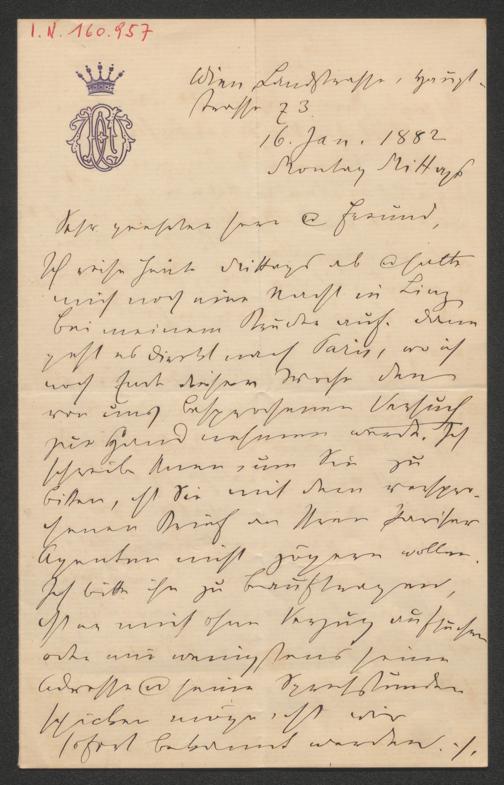 I. N. 160.957
Wien Landstrasse, Haupt-
strasse 73
16. Jan. 1882
Montag Mittags
Sehr geehrter Herr & Freund,
Ich reise heute Mittags ab & halte
mich noch eine Nacht in Linz
bei meinem Bruder auf. Dann
geht es direkt nach Paris, wo ich
noch Ende dieser Woche den
von uns besprochenen Versuch
zur Hand nehmen werde. Ich
schreibe Ihnen, um Sie zu
bitten, dß Sie mit dem verspro-
chenen Brief an Ihren Pariser
Agenten nicht zögern wollen.
Ich bitte ihn zu beauftragen,
dß er mich ohne Verzug aufsuchen
oder mir wenigstens seine
Adresse & seine Sprechstunden
schicken möge, dß wir
sofort bekannt werden. ./.